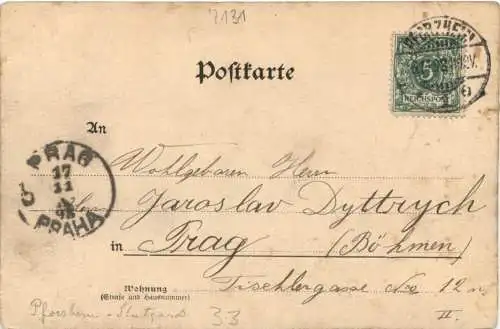 7131
PFORZHEIM
Postkarte
5
REICHSPOST
An
PRAG
17
11
PRAHA
Wohlgeboren Herrn
Jaroslav Dyttrych
in Prag (Böhmen)
Tischlergasse No 12 n.
Wohnung
(Straße und Hausnummer)
II.
Pforzheim - Stuttgard 33